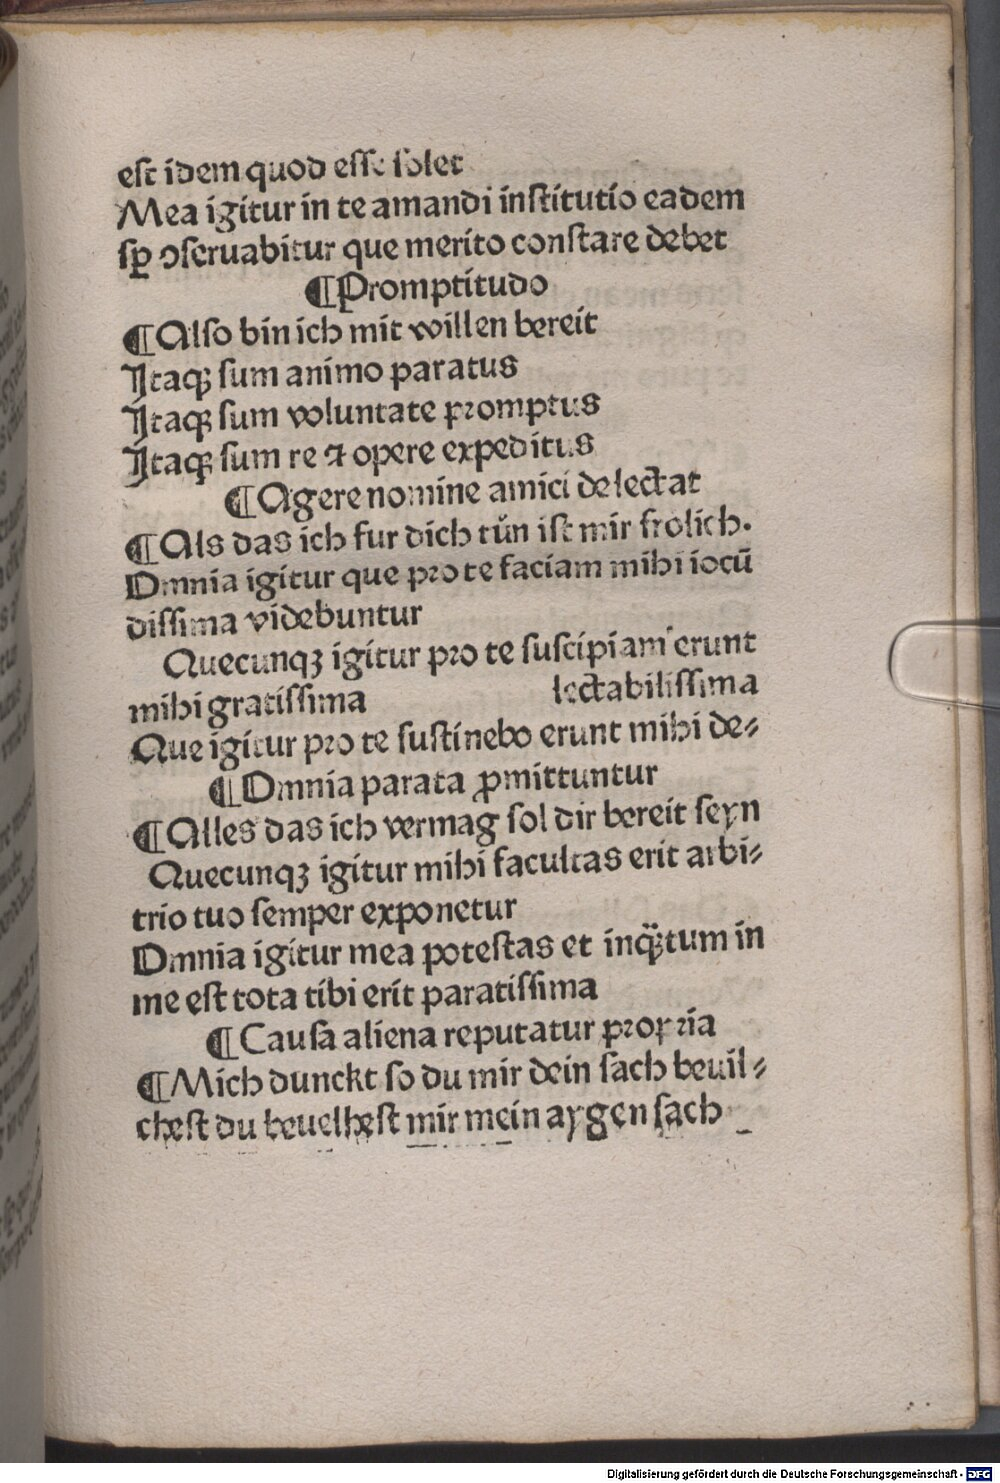 est idem quod esse solet
Mea igitur in te amandi institutio eadem
sꝑ ꝯseruabitur que merito constare debet
¶Promptitudo
¶Also bin ich mit willen bereit
Itaqꝫ sum animo paratus
Itaqꝫ sum voluntate promptus
Itaqꝫ sum re ⁊ opere expeditus
¶Agere nomine amici delectat
¶Als das ich fur dich tuͦn ist mir frolich.
Omnia igitur que pro te faciam mihi iocū
dissima videbuntur
Quecunqꝫ igitur pro te suscipiam erunt
mihi gratissima lectabilissima
Que igitur pro te sustinebo erunt mihi de⸗
¶Omnia parata ꝓmittuntur
¶Alles das ich vermag sol dir bereit seyn
Quecunqꝫ igitur mihi facultas erit arbi⸗
trio tuo semper exponetur
Omnia igitur mea potestas et inqͣꝫtum in
me est tota tibi erit paratissima
¶Causa aliena reputatur propria
¶Mich dunckt so du mir dein sach beuil⸗
chest du beuelhest mir mein aygen sach
Digitalisierung gefördert durch die Deutsche Forschungsgemeinschaft - DFG